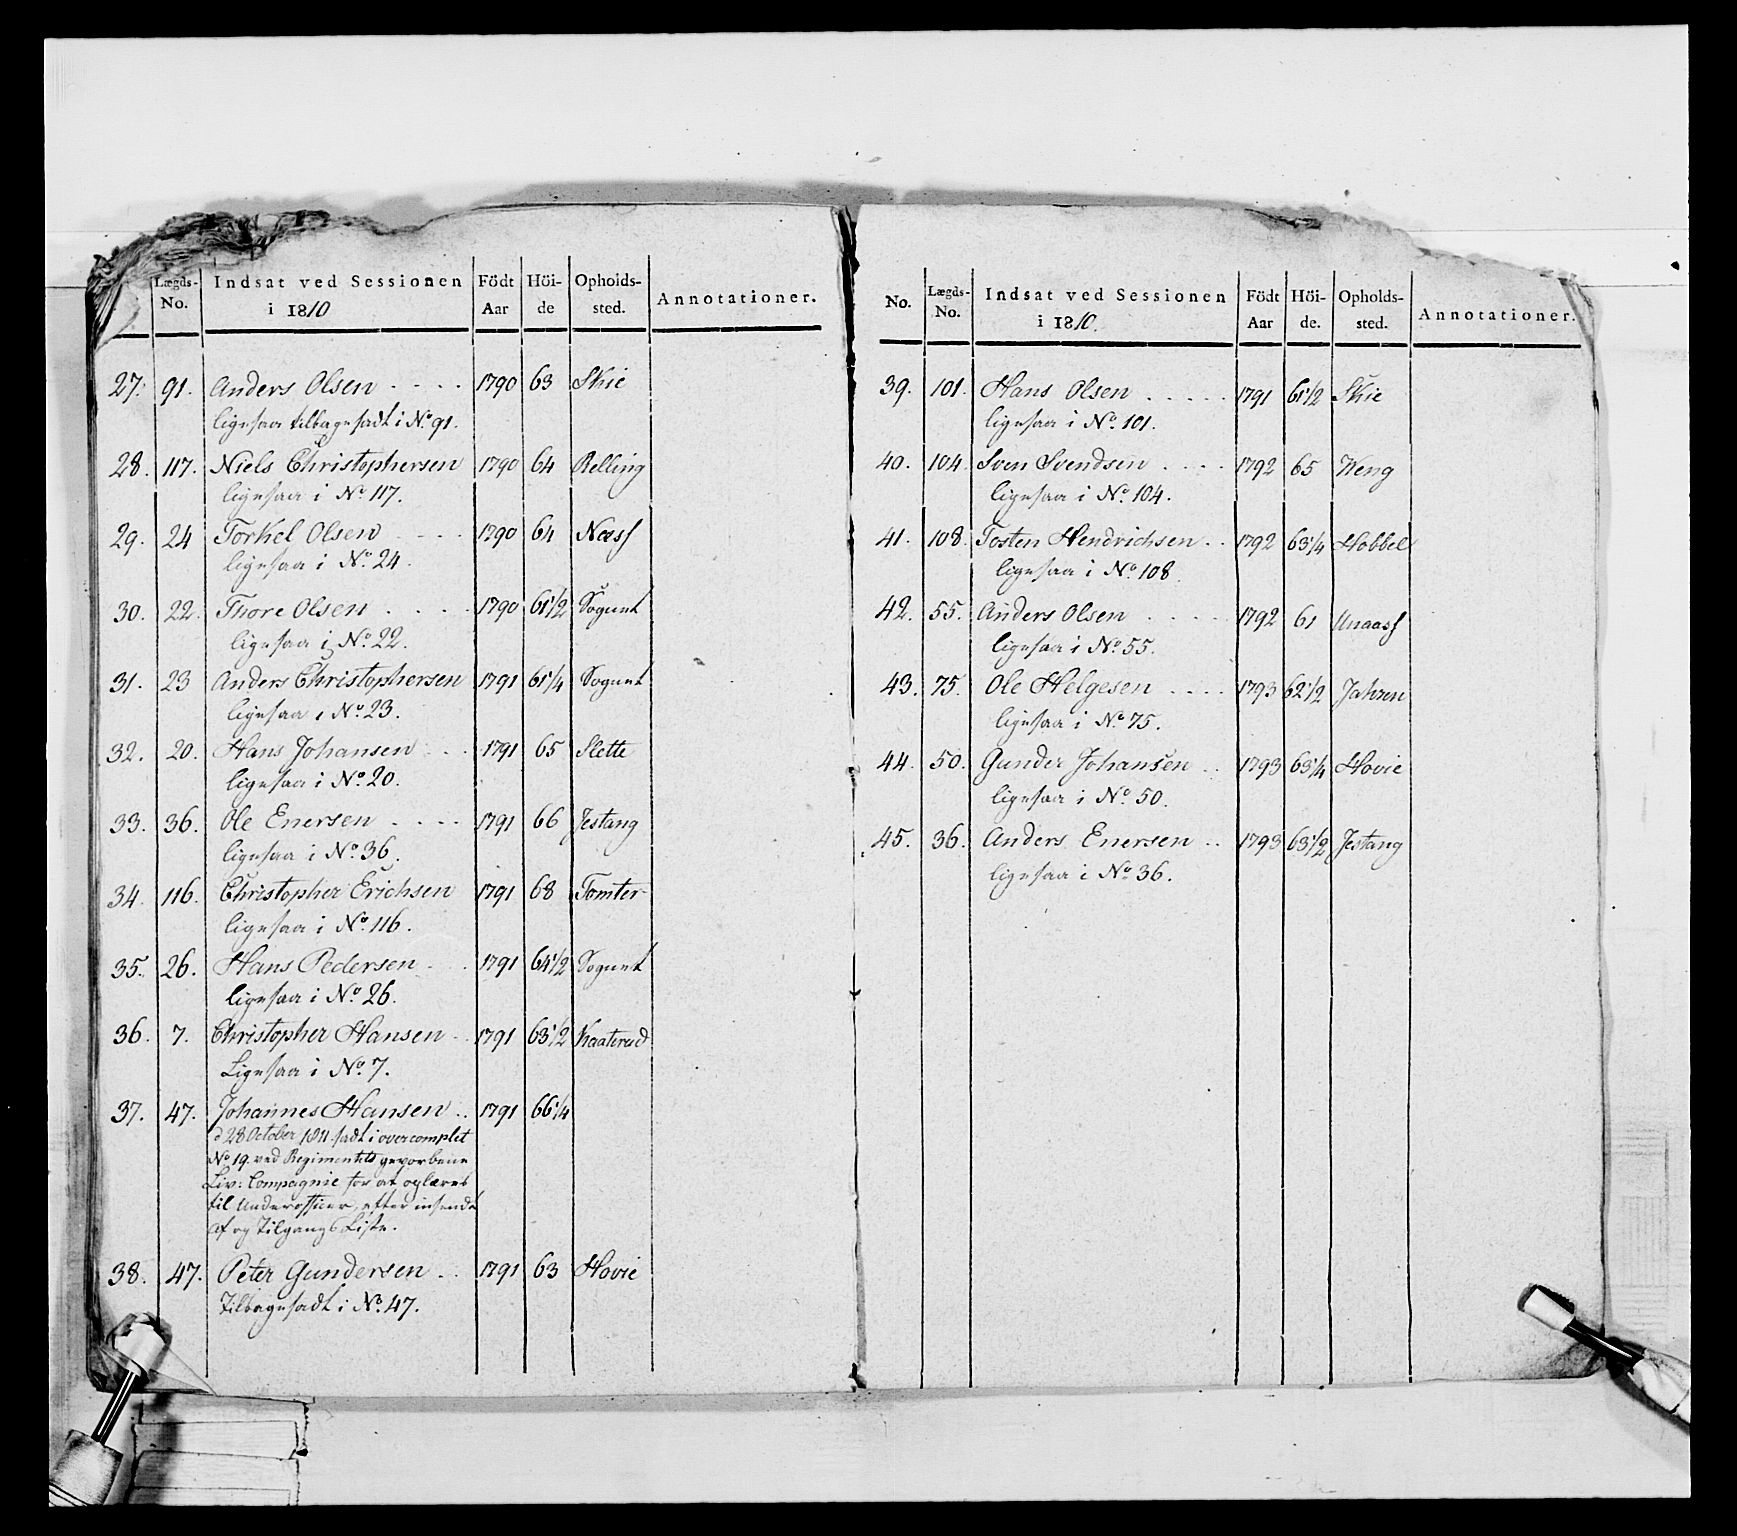 Lægds-No. Indsat ved Sessionen i 1810 Födt Aar Höi-de Opholds-sted. Annotationer.
27. 91. Anders Olsen . . . . 1790 63 Skie
ligesaa tilbagesadt i No. 91.
28. 117. Niels Christophersen 1790 64 Relling
ligesaa i No. 117.
29. 24 Torkel Olsen . . . . 1790 64 Næss
ligesaa i No. 24.
30. 22. Thore Olsen . . . . 1790 61 1/2 Sogunt
ligesaa i No. 22.
31. 23 Anders Christophersen 1791 61 1/4 Sogunt
ligesaa i No. 23.
32. 20. Hans Johansen . . . 1791 65 Slette
ligesaa i No. 20.
33. 36. Ole Enersen . . . . 1791 66 Jestang
ligesaa i No. 36.
34. 116. Christopher Erichsen 1791 68 Tomter
ligesaa i No. 116.
35. 26. Hans Pedersen . . 1791 64 1/2 Sogunt
ligesaa i No. 26.
36. 7. Christopher Hansen . . 1791 63 1/2 Kaaterud
Ligesaa i No. 7.
37. 47. Johannes Hansen . . 1791 66 1/4
d 28 October 1811 sadt i overcomplet
No. 19. ved Regimentets gevorbene
Liv: Compagnie for at oplæres
til Underofficer, efter insendt
af og Tilgangs Liste.
38. 47. Peter Gundersen . . 1791 63 Hovie
Tilbagesadt i No. 47.
No. Lægds-No. Indsat ved Sessionen i 1810. Födt Aar Höi-de. Opholds-sted. Annotationer.
39. 101. Hans Olsen . . . . . 1791 61 1/2 Skie
ligesaa i No. 101.
40. 104. Sven Svendsen . . . . 1792 65 Weng
ligesaa i No. 104.
41. 108. Tosten Hendrichsen . . 1792 63 1/4 Hobbel
ligesaa i No. 108.
42. 55. Anders Olsen . . . . 1792 61 Unaass
ligesaa i No. 55.
43. 75. Ole Helgesen . . . . 1793 62 1/2 Jahren
ligesaa i No. 75.
44. 50. Gunder Johansen . . 1793 63 1/4 Hovie
ligesaa i No. 50.
45. 36. Anders Enersen . . 1793 63 1/2 Jestang
ligesaa i No. 36.